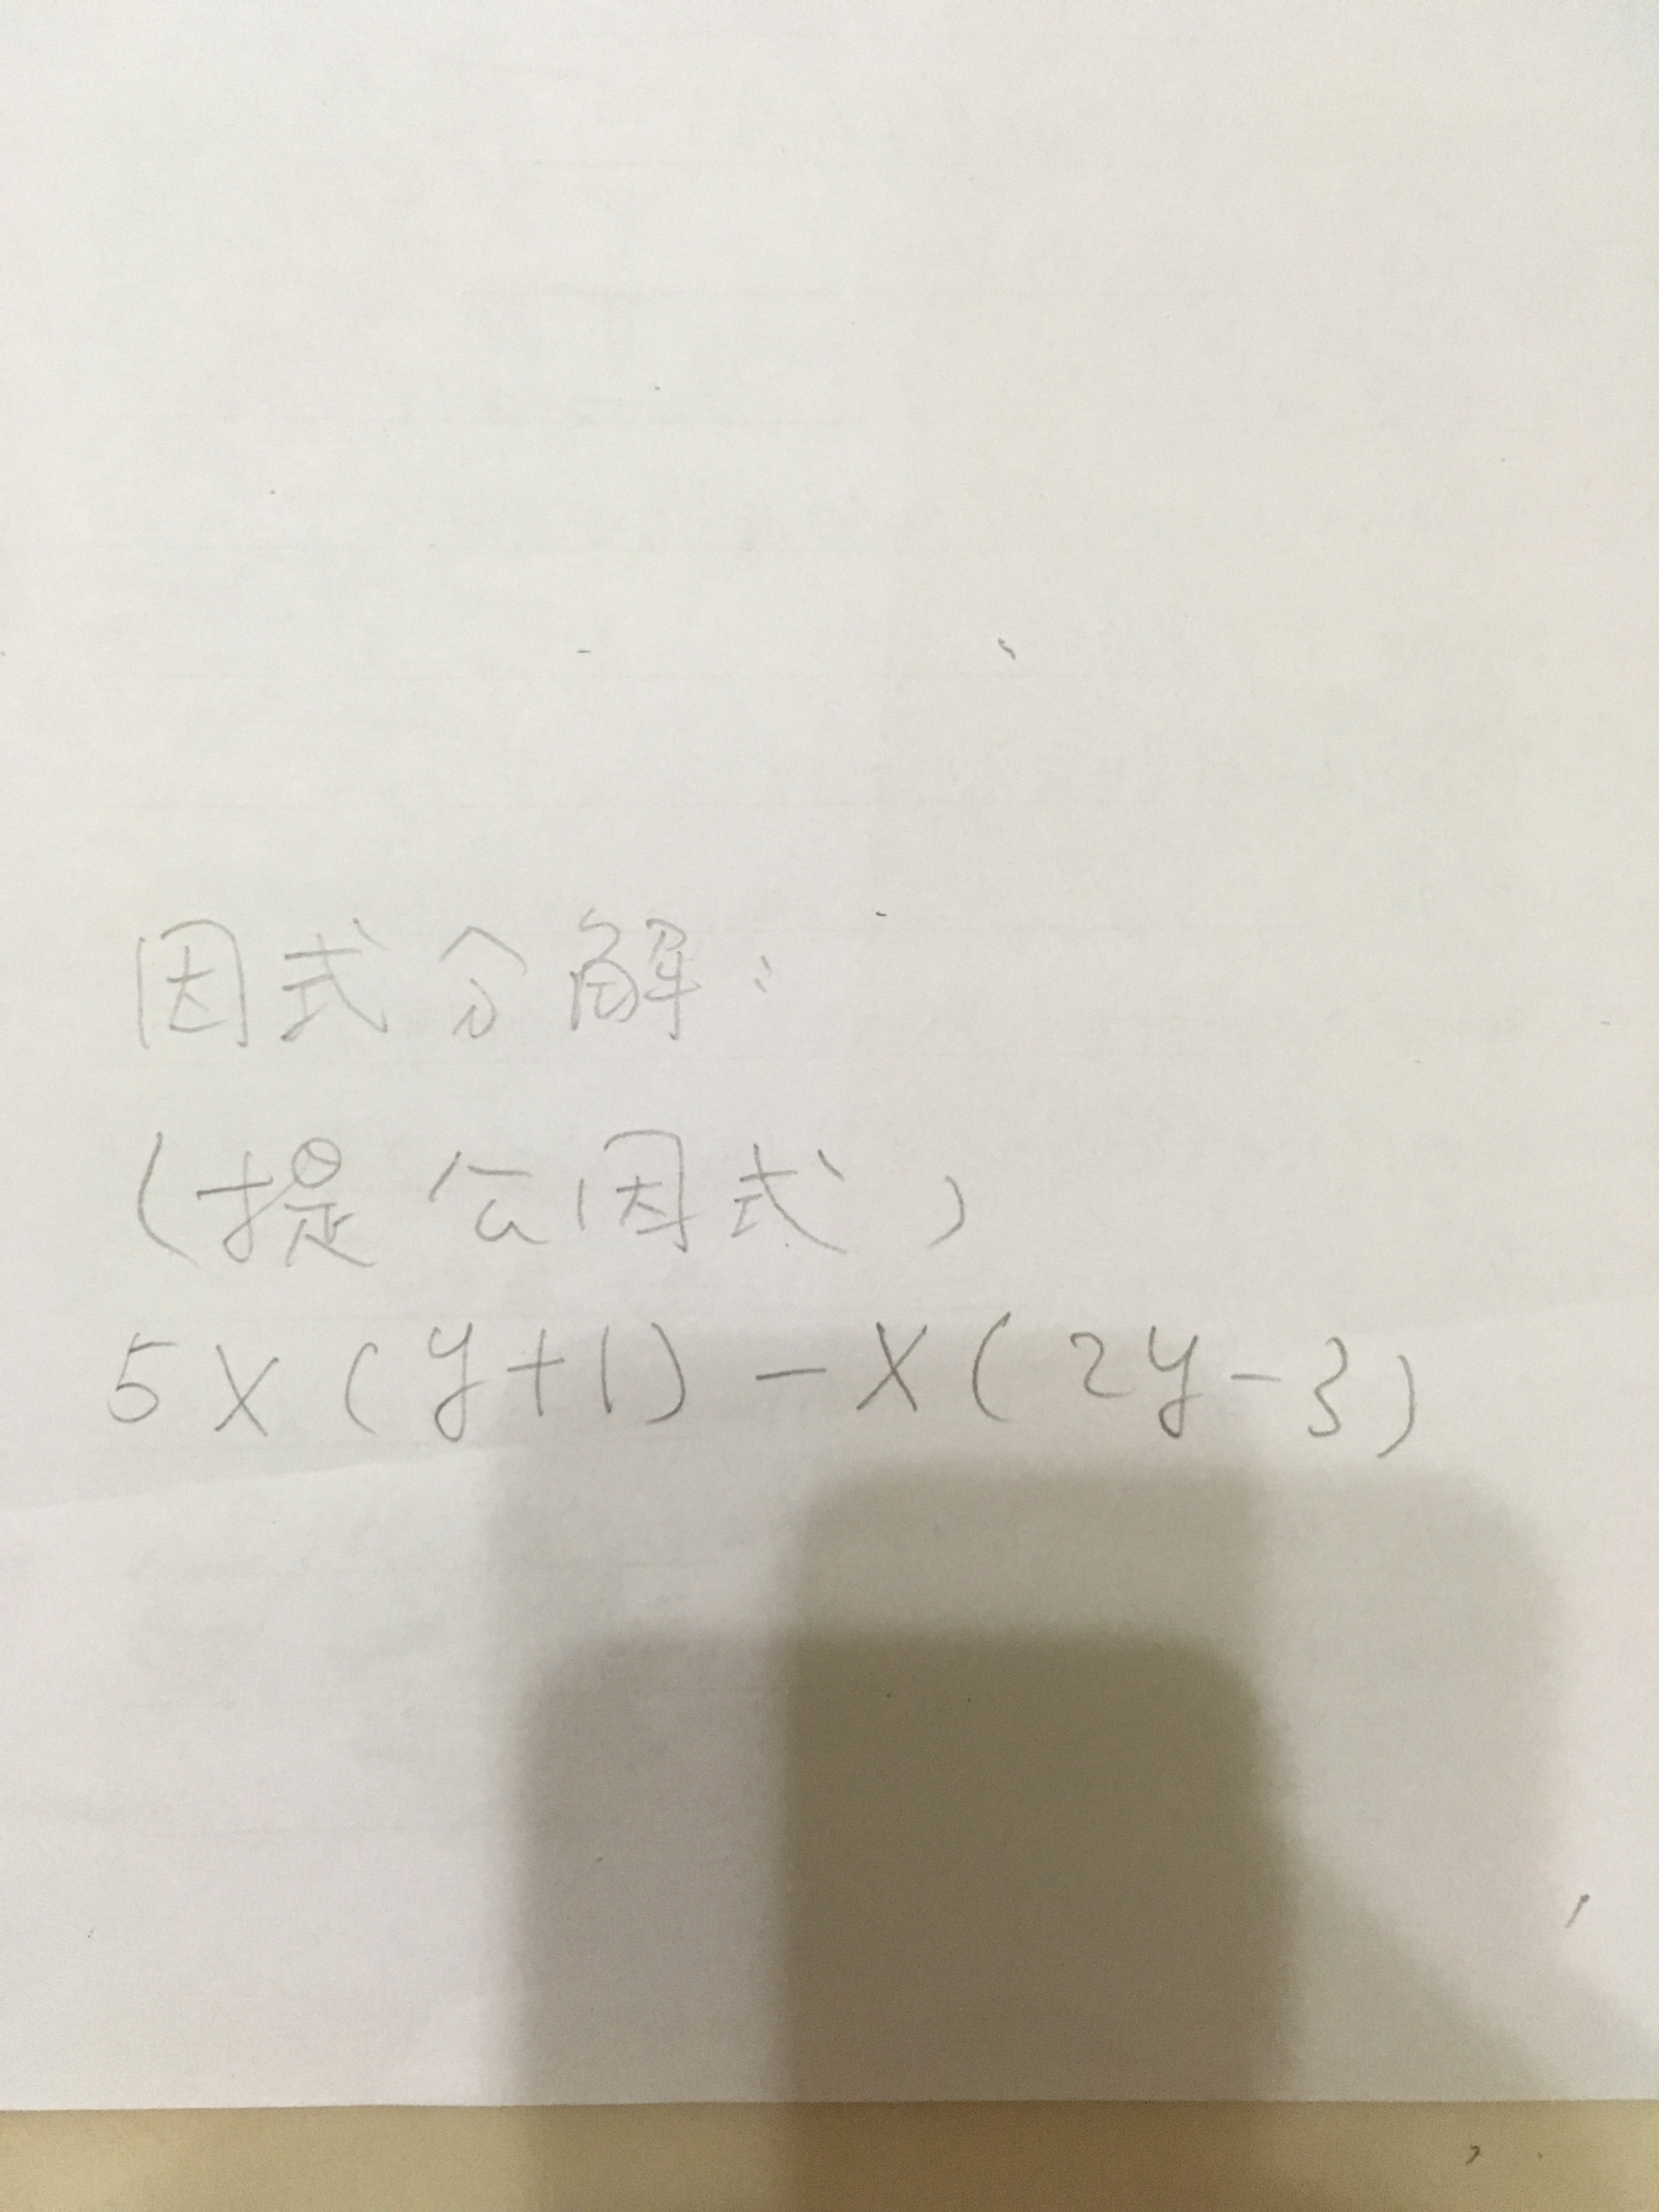 因式分解：
（提公因式）
5x(y+1)-x(2y-3)